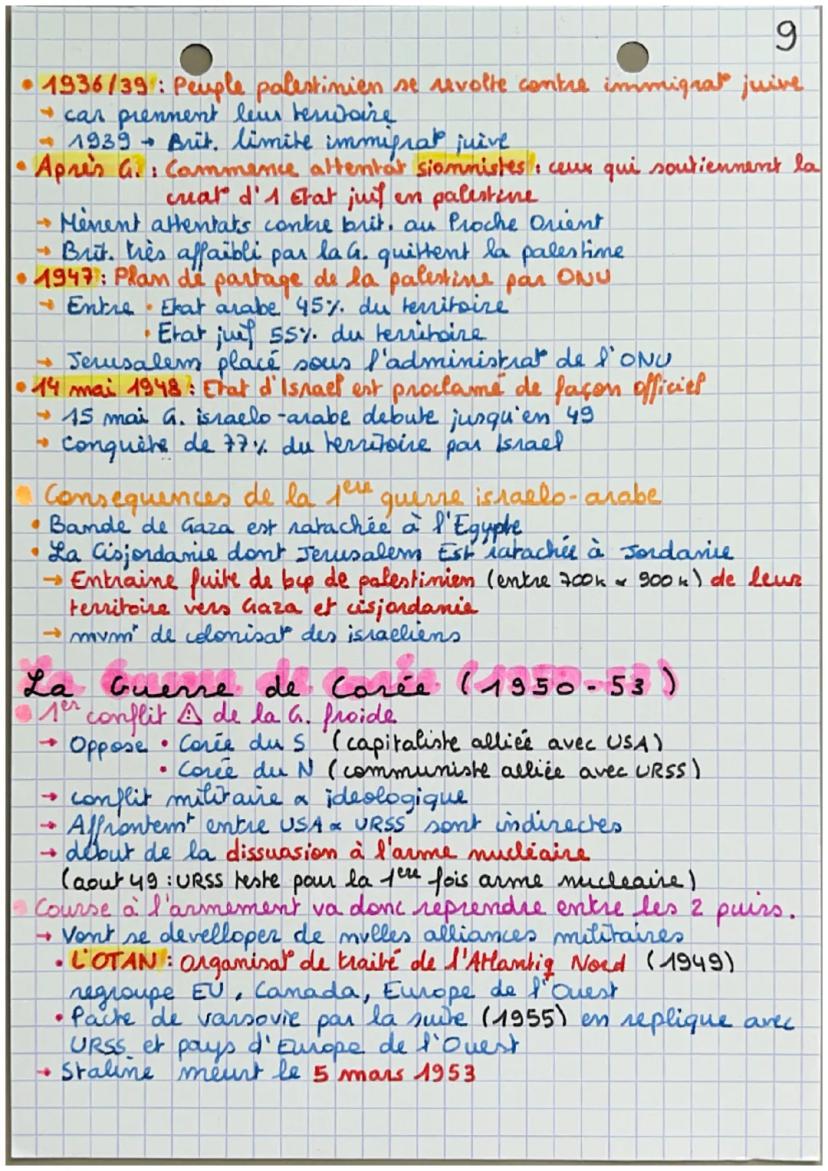 9
• 1936/39 : Peuple palestinien se revolte contre immigrat° juive
→ car prennent leur territoire
→ 1939 → Brit. limite immigrat° juive
• Après G. : Commence attentat sionnistes : ceux qui soutiennent la
creat° d'1 Etat juif en palestine
→ Mènent attentats contre brit. au Proche Orient
→ Brit. très affaibli par la G. quittent la palestine
• 1947 : Plan de partage de la palestine par ONU
→ Entre • Etat arabe 45% du territoire
• Etat juif 55% du territoire
→ Jerusalem placé sous l'administrat° de l'ONU
• 14 mai 1948 : Etat d'Israel est proclamé de façon officiel
→ 15 mai G. israelo-arabe debute jusqu'en 49
→ Conquête de 77% du territoire par Israel
• Consequences de la 1ere guerre israelo-arabe
• Bande de Gaza est ratachée à l'Egypte
• La Cisjordanie dont Jerusalem Est ratachée à Jordanie
→ Entraine fuite de bcp de palestinien (entre 700k & 900k) de leur
territoire vers Gaza et cisjordanie
→ mvmt de colonisat° des israeliens
La Guerre de Corée (1950-53)
• 1er conflit ⚠ de la G. froide
→ Oppose • Corée du S (capitaliste alliée avec USA)
• Corée du N (communiste alliée avec URSS)
→ conflit militaire & ideologique
→ Affrontemt entre USA & URSS sont indirectes
→ début de la dissuasion à l'arme nucléaire
(aout 49 : URSS teste pour la 1ere fois arme nucleaire)
• Course à l'armement va donc reprendre entre les 2 puirs.
→ Vont se develloper de nvlles alliances militaires
• L'OTAN : Organisat° de traité de l'Atlantiq Nord (1949)
regroupe EU, Canada, Europe de l'Ouest
• Pacte de varsovie par la suite (1955) en replique avec
URSS et pays d'Europe de l'Ouest
→ Staline meurt le 5 mars 1953